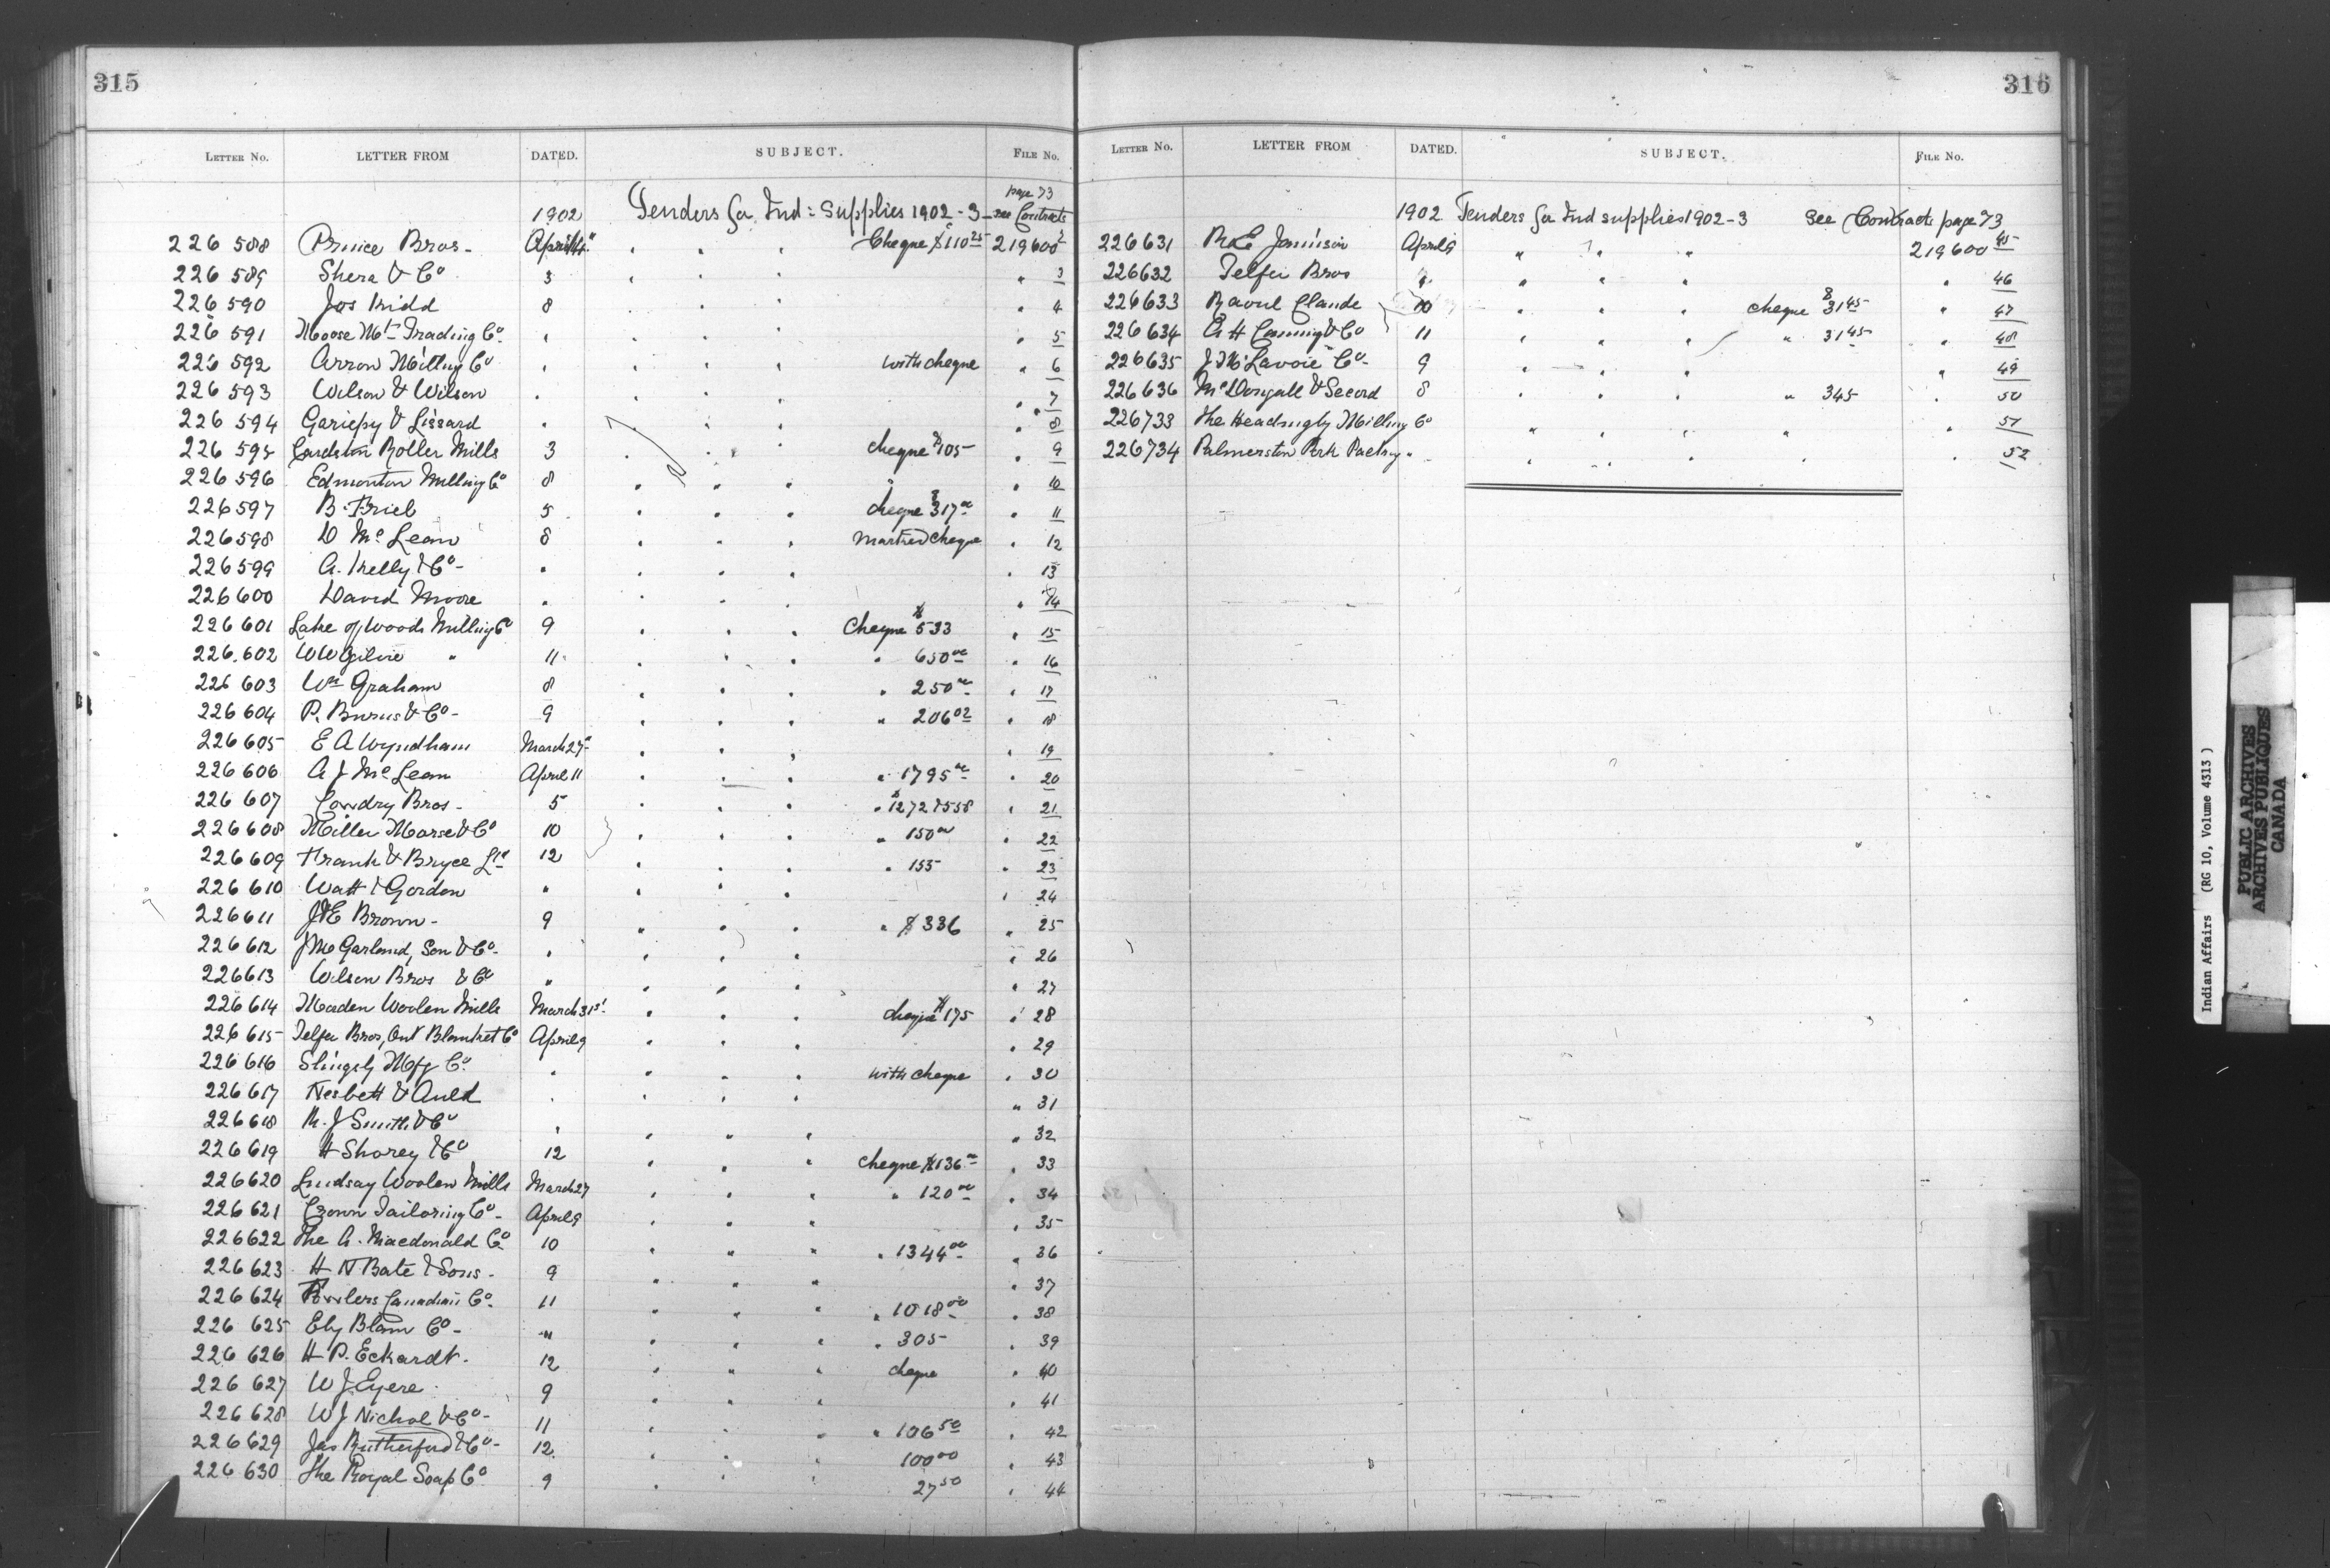 315
LETTER NO. LETTER FROM DATED. SUBJECT. FILE NO.
page 73
1902 Tenders for Ind: Supplies 1902-3 - see Contracts
226 588 Prince Bros - April 14 " " " Cheque $110 25 219600 2
226 589 Shera & Co 3 " " " " 3
226 590 Jos Kidd 8 " " " " 4
226 591 Moose Mtn Trading Co. " " " " " 5
226 592 Arrow Milling Co " " " " with cheque " 6
226 593 Wilson & Wilson " " " " " 7
226 594 Gariepy & Lissard " " " " " 8
226 595 Cardston Roller Mills 3 " " " cheque $105 - " 9
226 596 Edmonton Milling Co 8 " " " " 10
226597 B. Friel 5 " " " cheque $317 00 " 11
226598 D Mc Lean 8 " " " marked cheque " 12
226599 A. Kelly & Co - " " " " " 13
226600 David Moore " " " " " 14
226601 Lake of Woods Milling Co 9 " " " Cheque $533 " 15
226.602 W W Ogilvie " 11 " " " " 650 00 " 16
226 603 Wm Graham 8 " " " " 250 00 " 17
226 604 P. Burns & Co - 9 " " " " 206 02 " 18
226605 E A Wyndham March 27 " " " " 19
226 606 A J Mc Lean April 11 " " " " 1795 00 " 20
226 607 Cowdry Bros - 5 " " " " $1272 & 558 " 21
226608 Miller Morse & Co 10 " " " " 150 00 " 22
226609 Frank & Bryce Ltd 12 " " " " 155 " 23
226 610 Watt & Gordon " " " " " 24
226611 J & E Brown - 9 " " " " $336 " 25
226 612 J M Garland, Son & Co - " " " " " 26
226613 Wilson Bros & Co " " " " " 27
226 614 Maden Woolen Mills March 31st " " " cheque $175 " 28
226 615 Telfer Bros, Ont Blanket Co April 9 " " " " 29
226 616 Slingsly Mfg Co. " " " " with cheque " 30
226 617 Nesbett & Auld " " " " " 31
226 618 R. J Smith & Co " " " " " 32
226619 H Shorey & Co 12 " " " cheque $136 00 " 33
226620 Lindsay Woolen Mills March 27 " " " " 120 00 " 34
226 621 Crown Tailoring Co - April 9 " " " " 35
226622 The A. Macdonald Co 10 " " " " 1344 00 " 36
226 623 H N Bate & Sons - 9 " " " " 37
226 624 Fowlers Canadian Co. 11 " " " " 1018 00 " 38
226 625 Eby Blain Co - " " " " " 305 - " 39
226 626 H P. Eckardt. 12 " " " cheque " 40
226 627 W J Eyere 9 " " " " 41
226 628 W J Nichol & Co - 11 " " " " 106 50 " 42
226 629 Jas Rutherford & Co - 12 " " " 100 00 " 43
226 630 The Royal Soap Co 9 " " " 27 50 " 44
316
LETTER NO. LETTER FROM DATED. SUBJECT. FILE NO.
1902 Tenders for Ind supplies 1902-3 See Contracts page 73
226631 R E Jamieson April 9 " " " 219600 45
226632 Telfer Bros " " " " " 46
226633 Raoul Claude 10 " " " cheque $31 45 " 47
226 634 A H Canning & Co 11 " " " " 31 45 " 48
226635 J N Lavoie Co - 9 " " " " 49
226636 McDougall & Secord 8 " " " " 345 " 50
226733 The Headingly Milling Co " " " " 51
226734 Palmerston Pork Packing " " " " " 52
Indian Affairs (RG 10, Volume 4313)
PUBLIC ARCHIVES
ARCHIVES PUBLIQUES
CANADA